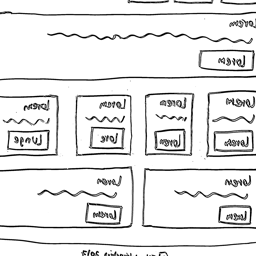 Lorem
Lorem
Lorem Lorem Lorem Lorem
Lorem Lorem
Lorem Lorem
Lorem Lorem